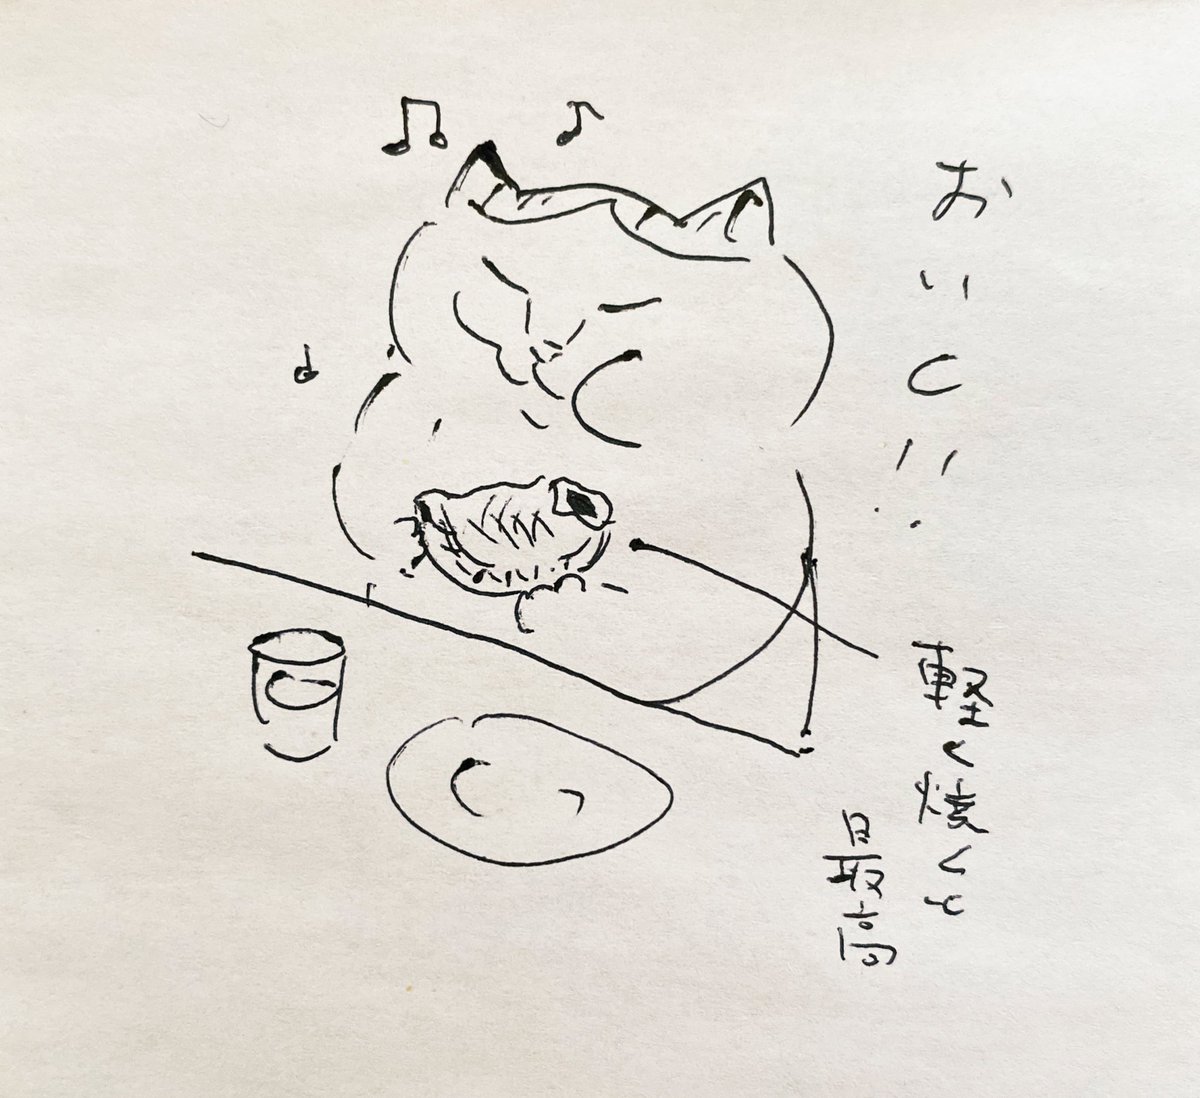 おいし!!
軽く焼くと
最高